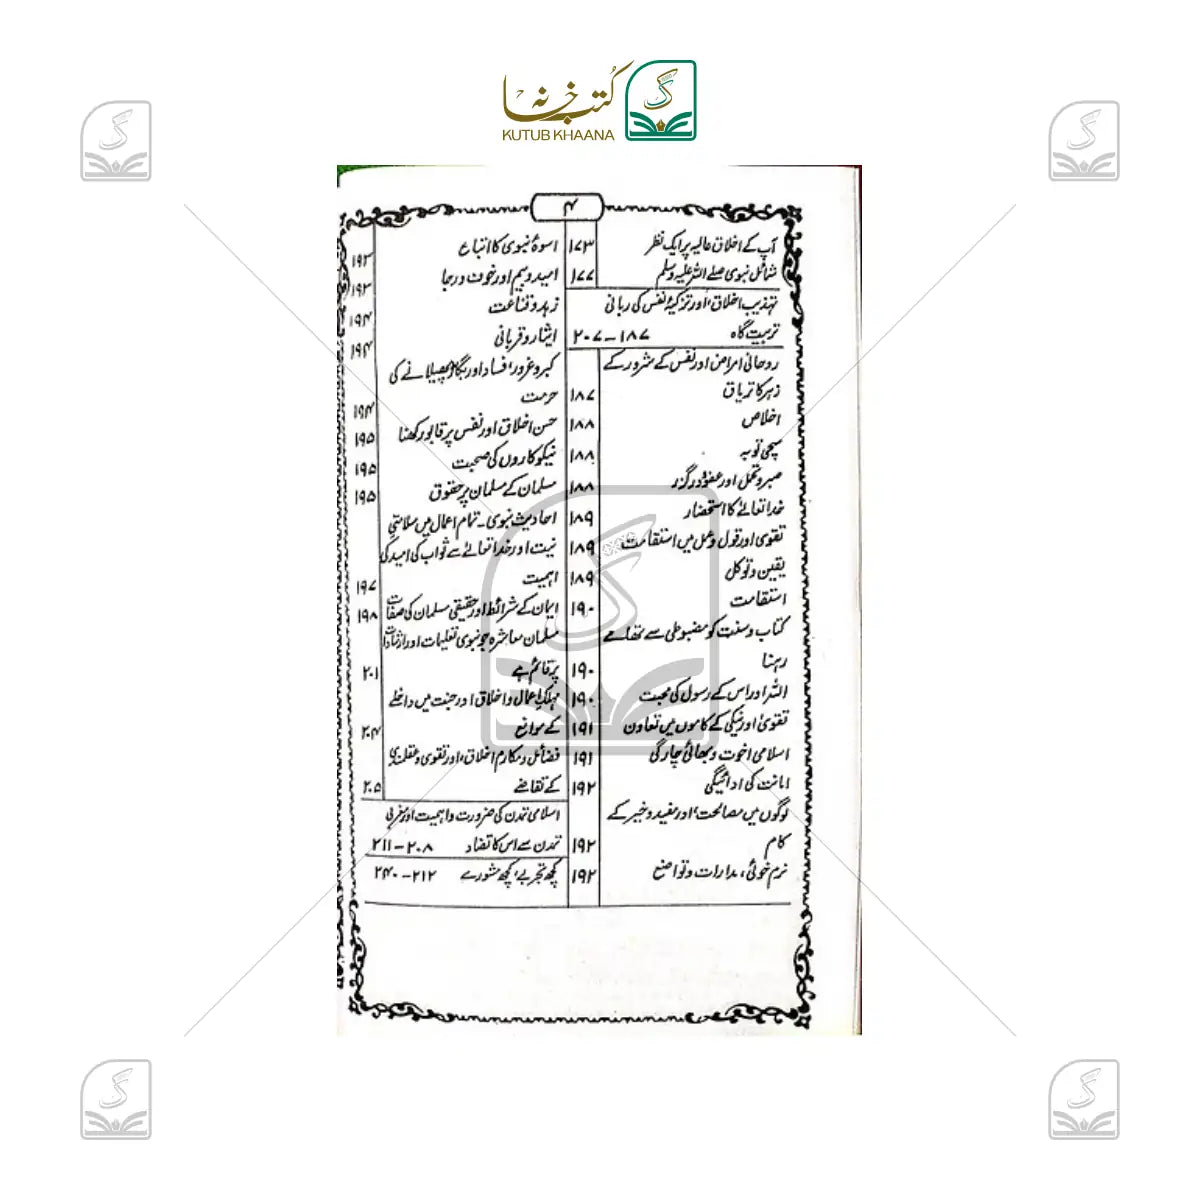 کتب خانہ
KUTUB KHAANA
۴
آپ کے اخلاق عالیہ پر ایک نظر ۱۷۳
شمائل نبوی صلے اللہ علیہ وسلم ۱۷۷
تہذیب اخلاق، اور تزکیۂ نفس کی ربانی
تربیت گاہ ۱۸۷-۲۰۷
روحانی امراض اور نفس کے شرور کے
زہر کا تریاق ۱۸۷
اخلاص ۱۸۸
سچی توبہ ۱۸۸
صبر و تحمل اور عفو و درگزر ۱۸۸
خدا تعالےٰ کا استحضار ۱۸۹
تقویٰ اور قول و عمل میں استقامت ۱۸۹
یقین و توکل ۱۸۹
استقامت ۱۹۰
کتاب و سنت کو مضبوطی سے تھامے
رہنا ۱۹۰
اللہ اور اس کے رسول کی محبت ۱۹۰
تقویٰ اور نیکی کے کاموں میں تعاون ۱۹۱
اسلامی اخوت و بھائی چارگی ۱۹۱
امانت کی ادائیگی ۱۹۲
لوگوں میں مصالحت، اور مفید و خیر کے
کام ۱۹۲
نرم خوئی، مدارات و تواضع ۱۹۲
اسوۂ نبوی کا اتباع ۱۹۳
امید و بیم اور خوف و رجا ۱۹۳
زہد و قناعت ۱۹۴
ایثار و قربانی ۱۹۴
کبر و غرور، فساد اور بگاڑ پھیلانے کی
حرمت ۱۹۴
حسن اخلاق اور نفس پر قابو رکھنا ۱۹۵
نیکو کاروں کی صحبت ۱۹۵
مسلمان کے مسلمان پر حقوق ۱۹۵
احادیث نبوی۔ تمام اعمال میں سلامتیِ
نیت اور خدا تعالےٰ سے ثواب کی امید کی
اہمیت ۱۹۷
ایمان کے شرائط اور حقیقی مسلمان کی صفات ۱۹۸
مسلمان معاشرہ جو نبوی تعلیمات اور ارشادات
پر قائم ہے ۲۰۱
مہلک اعمال و اخلاق اور جنت میں داخلے
کے موانع ۲۰۴
فضائل و مکارم اخلاق، اور تقویٰ و عقلمندی
کے تقاضے ۲۰۵
اسلامی تمدن کی ضرورت و اہمیت اور مغربی
تمدن سے اس کا تضاد ۲۰۸-۲۱۱
کچھ تجربے، کچھ مشورے ۲۱۲-۲۴۰